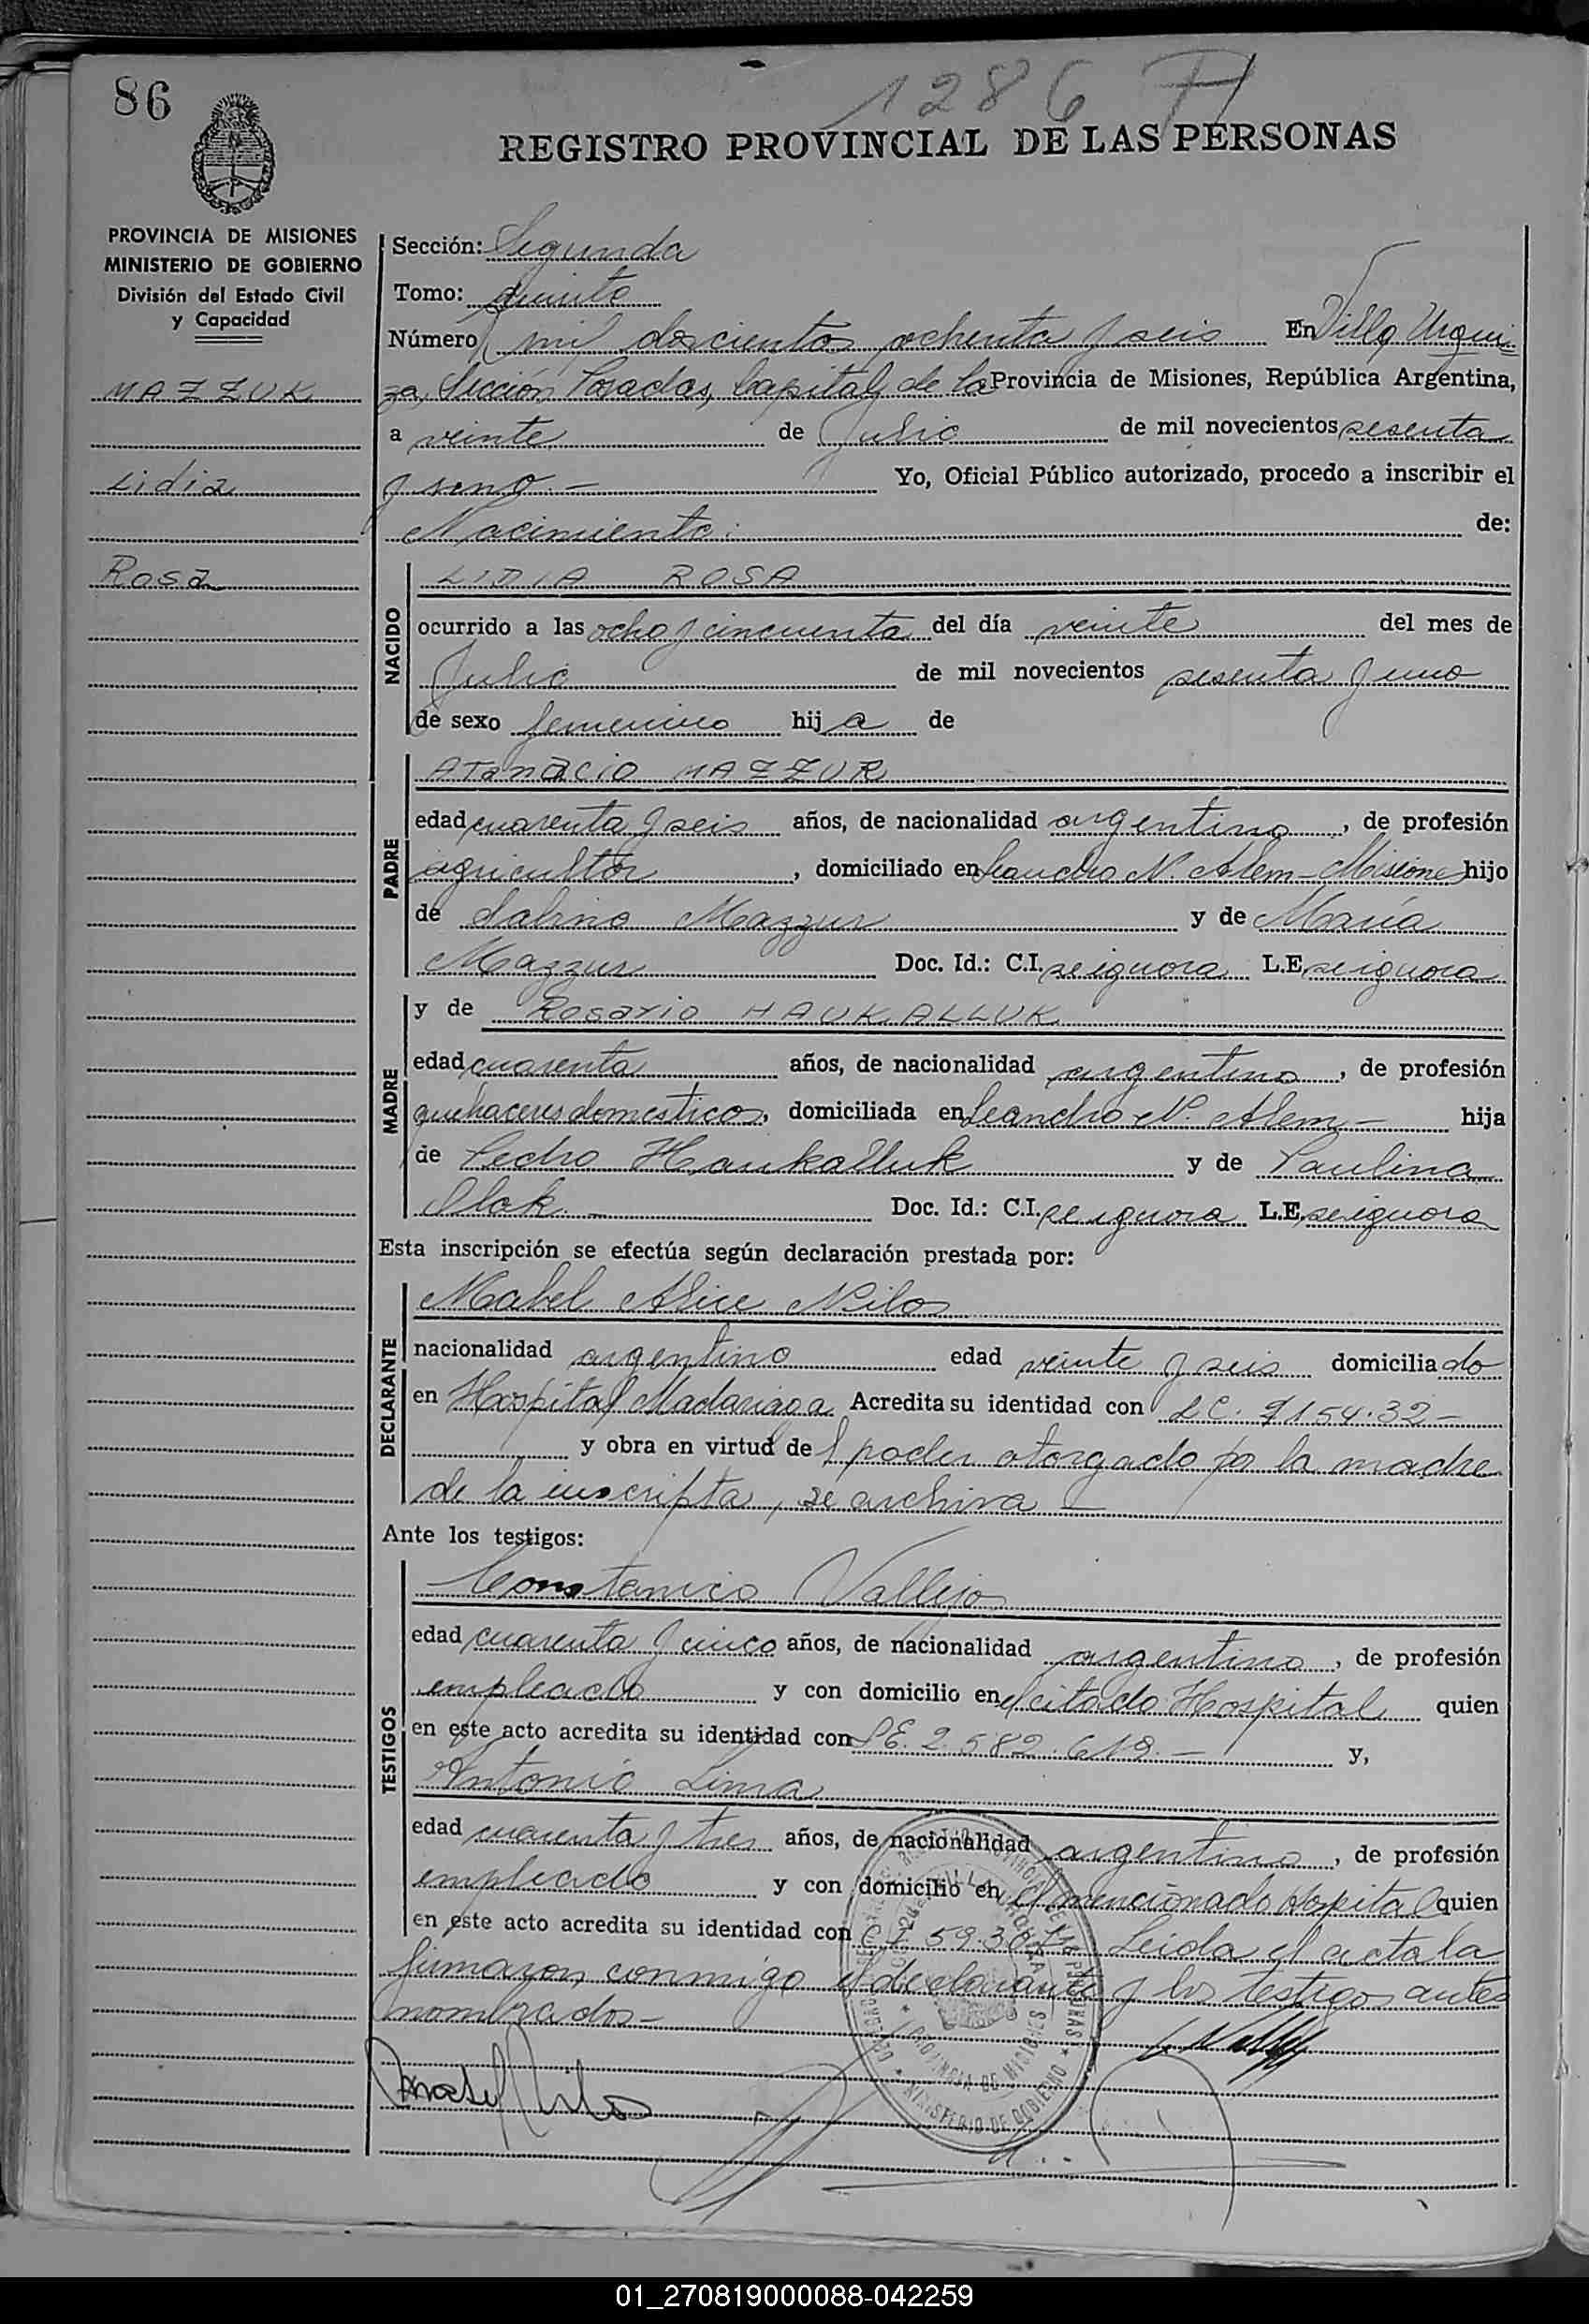 86
1286 F
REGISTRO PROVINCIAL DE LAS PERSONAS
PROVINCIA DE MISIONES
MINISTERIO DE GOBIERNO
División del Estado Civil
y Capacidad
MAZZUK
Lidia
Rosa
Sección: Segunda
Tomo: quinto
Número mil doscientos ochenta y seis En Villa Urqui=
za, Sección Posadas, Capital de la Provincia de Misiones, República Argentina,
a veinte de Julio de mil novecientos sesenta
y uno.- Yo, Oficial Público autorizado, procedo a inscribir el
Nacimiento: de:
NACIDO
LIDIA ROSA
ocurrido a las ocho y cincuenta del día veinte del mes de
Julio de mil novecientos sesenta y uno
de sexo femenino hija de
PADRE
Atanacio MAZZUR
edad cuarenta y seis años, de nacionalidad argentino, de profesión
agricultor, domiciliado en Leandro N. Alem - Misiones hijo
de Sabino Mazzur y de María
Mazzur Doc. Id.: C.I. se ignora L.E. se ignora
MADRE
y de Rosario HAUKALLUK
edad cuarenta años, de nacionalidad argentina, de profesión
quehaceres domesticos, domiciliada en Leandro N. Alem- hija
de Pedro Haukalluk y de Paulina
Slok.- Doc. Id.: C.I. se ignora L.E. se ignora
Esta inscripción se efectúa según declaración prestada por:
DECLARANTE
Mabel Alice Nilos
nacionalidad argentino edad veinte y seis domiciliado
en Hospital Madariaga Acredita su identidad con L C. 9154.32-
y obra en virtud del poder otorgado por la madre
de la inscripta, se archiva -
Ante los testigos:
TESTIGOS
Constancio Vallejo
edad cuarenta y cinco años, de nacionalidad argentino, de profesión
empleado y con domicilio en el citado Hospital quien
en este acto acredita su identidad con L E. 2.582.619.- y,
Antonio Lima
edad cuarenta y tres años, de nacionalidad argentino, de profesión
empleado y con domicilio en el mencionado Hospital quien
en este acto acredita su identidad con C I 59.307- Leida el acta la
firmaron conmigo el declarante y los testigos antes
nombrados-
Mabel Nilos
01_270819000088-042259